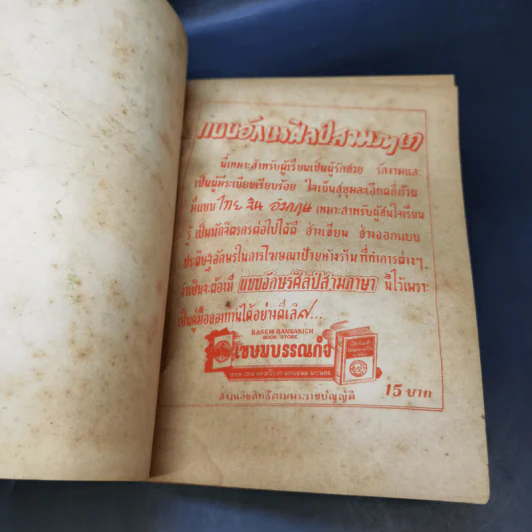 แบบอักษรศิลป์สามภาษา
นี้เหมาะสำหรับผู้เรียนเป็นผู้รักสวย รักงามและ
เป็นผู้มีระเบียบเรียบร้อย ใจเย็นสุขุมละเอียดถี่ถ้วน
มีแบบ ไทย จีน อังกฤษ เหมาะสำหรับผู้สนใจเรียน
รู้ เป็นนักจิตรกรต่อไปได้ดี ช่างเขียน ช่างออกแบบ
ประดิษฐ์อักษรในการโฆษณาป้ายห้างร้าน ที่ทำการต่างๆ
จำเป็นจะต้องมี แบบอักษรศิลป์สามภาษา นี้ไว้เพราะ
เป็นคู่มือของท่านได้อย่างดีเลิศ...
KASEM-BANNAKICH
BOOK STORE
เขษมบรรณกิจ
15 บาท
ส่วนลิขสิทธิ์ตามพระราชบัญญัติ